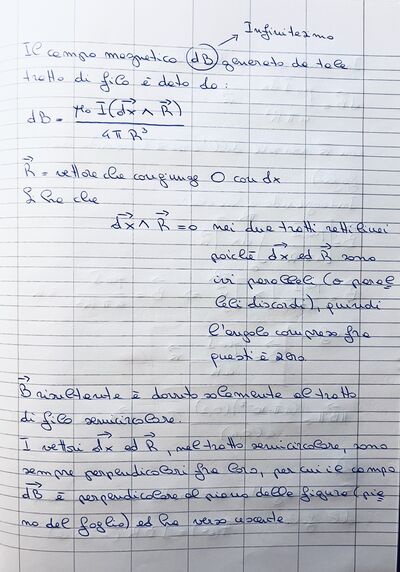 Infinitesimo
Il campo magnetico dB generato da tale
tratto di filo è dato da:
dB = μ₀ I (dx⃗ ∧ R⃗) / 4π R³
R⃗ = vettore che congiunge O con dx
Si ha che
dx⃗ ∧ R⃗ = 0 nei due tratti rettilinei
poiché dx⃗ ed R⃗ sono
ivi paralleli (o paral
leli discordi), quindi
l'angolo compreso fra
questi è zero.
B⃗ risultante è dovuto solamente al tratto
di filo semicircolare.
I vettori dx⃗ ed R⃗, nel tratto semicircolare, sono
sempre perpendicolari fra loro, per cui il campo
dB⃗ è perpendicolare al piano della figura (pia
no del foglio) ed ha verso uscente